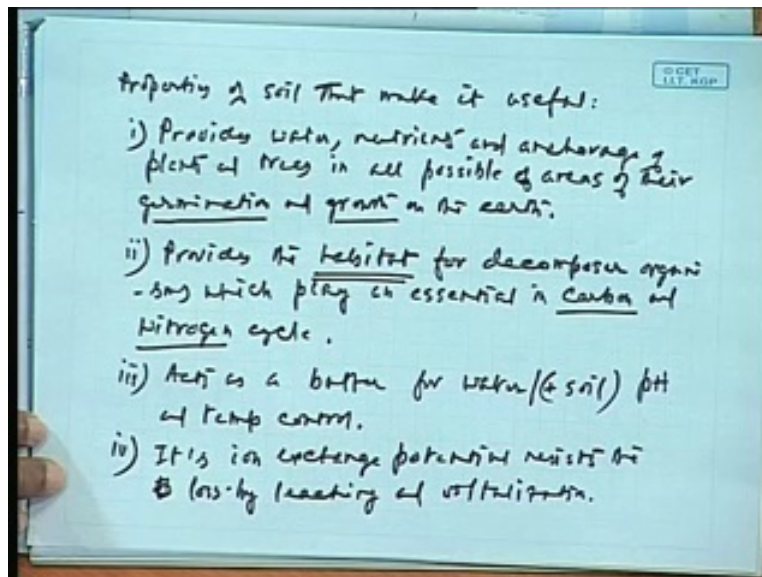 Properties of soil That make it useful:
© CET
I.I.T. KGP
i) Provides water, nutrient and anchorage of
plant and trees in all possible of areas of their
germination and growth on the earth.
ii) Provides the habitat for decomposer organi
-sms which play an essential in Carbon and
Nitrogen cycle.
iii) Acts as a buffer for water/(+ soil) pH
and temp control.
iv) It is ion exchange potential resists the
loss by leaching and voltalization.